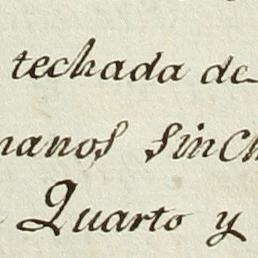 techada de
manos sin
Quarto y